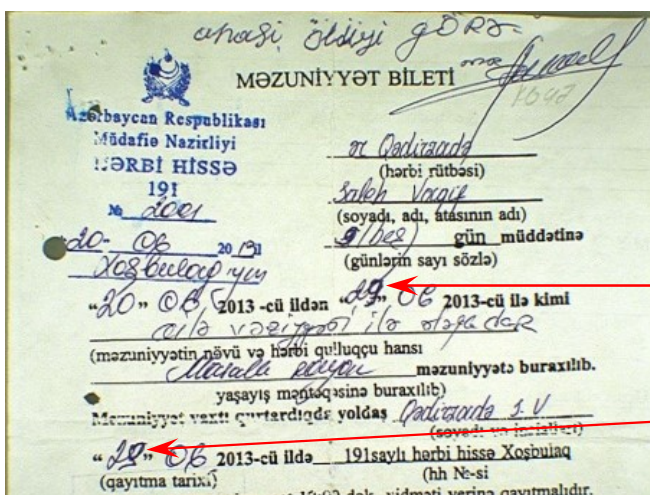 anası öldüyü görə
MƏZUNİYYƏT BİLETİ
Azərbaycan Respublikası
Müdafiə Nazirliyi
HƏRBİ HİSSƏ
191
№ 2001
Qədirzadə
(hərbi rütbəsi)
Saleh Vaqif
(soyadı, adı, atasının adı)
"20" 06 20
(beş) gün müddətinə
(günlərin sayı sözlə)
Xoşbulaq
"20" 06 2013 -cü ildən " " 06 2013-cü ilə kimi
ailə vəziyyəti ilə əlaqədar
(məzuniyyətin növü və hərbi qulluqçu hansı
Masallı rayon məzuniyyətə buraxılıb.
yaşayış məntəqəsinə buraxılıb)
Məzuniyyət vaxtı qurtardıqda yoldaş Qədirzadə S. V
(soyadı və inisialları)
" " 06 2013-cü ildə 191saylı hərbi hissə Xoşbulaq
(qayıtma tarixi) (hh №-si
xidməti yerinə qayıtmalıdır.